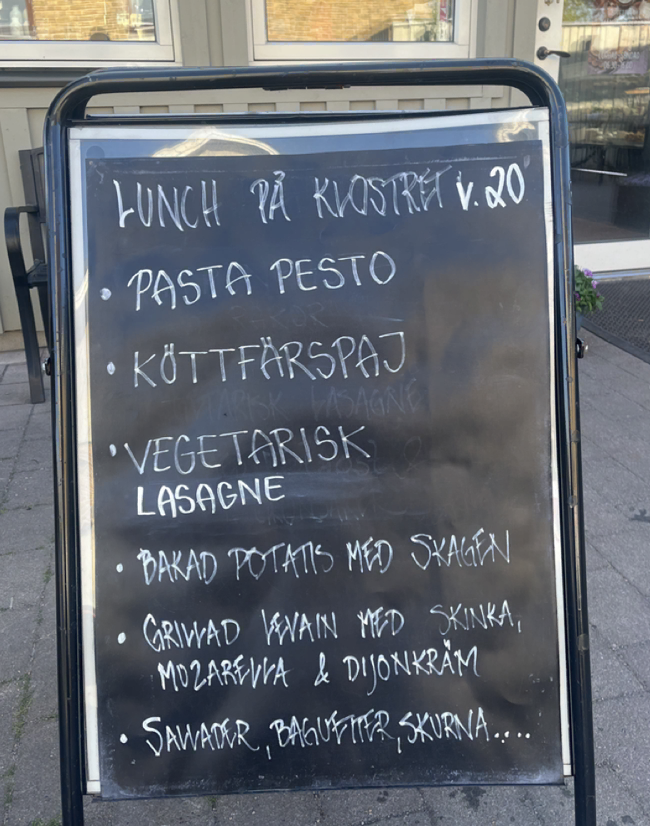 LUNCH PÅ KLOSTRET v.20
• PASTA PESTO
• KÖTTFÄRSPAJ
• VEGETARISK
LASAGNE
• BAKAD POTATIS MED SKAGEN
• GRILLAD LEVAIN MED SKINKA,
MOZARELLA & DIJONKRÄM
• SALLADER, BAGUETTER, SKURNA....